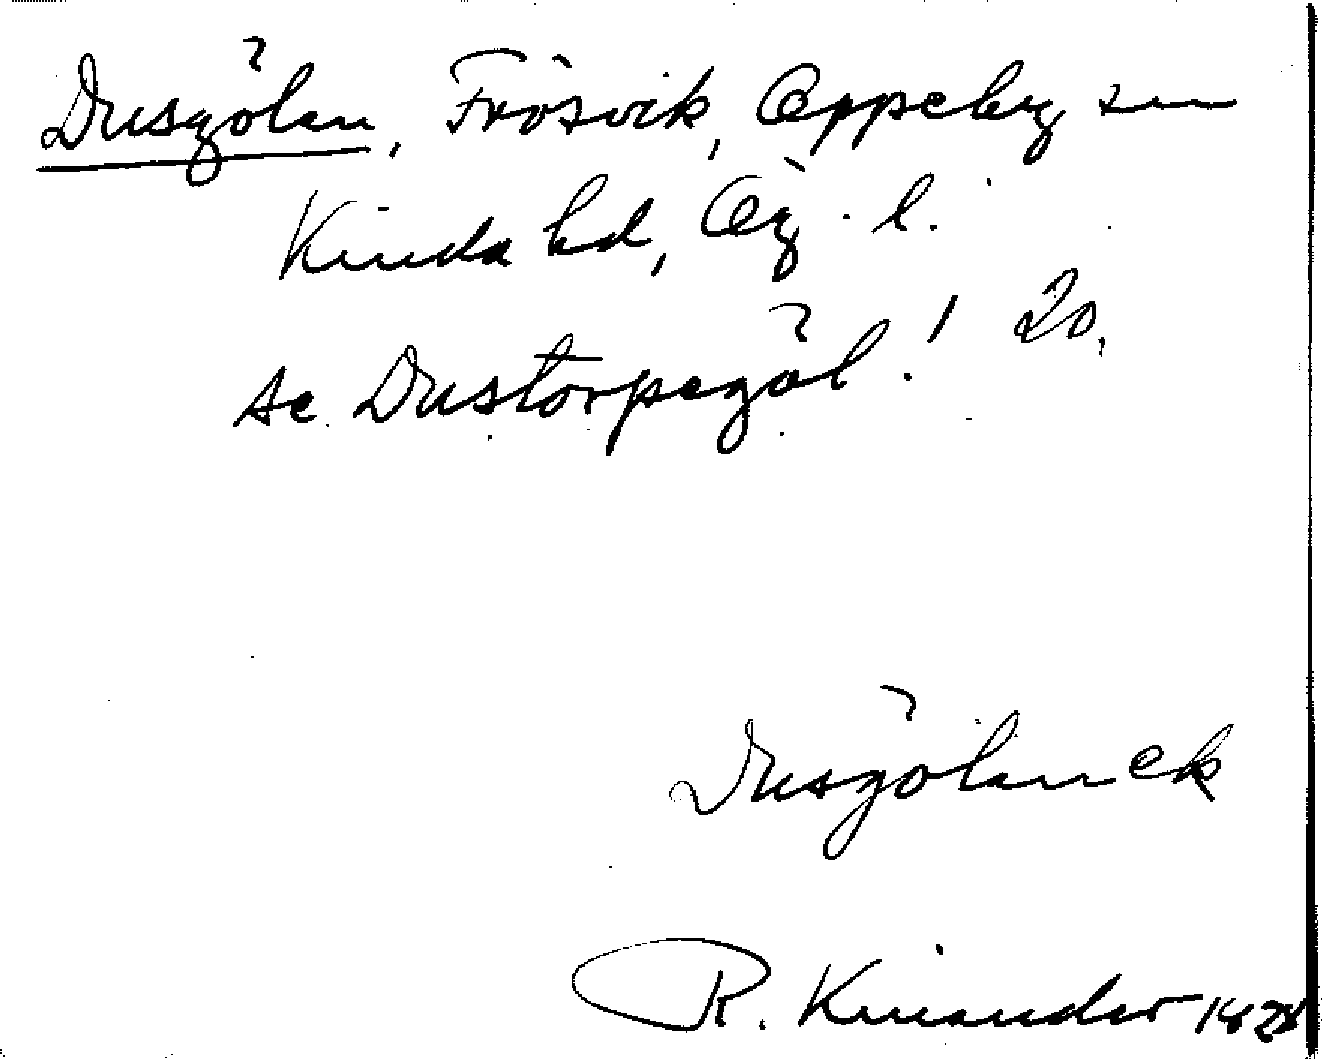 Dusgölen, Frösvik, Oppeby sn
Kinda hd, Ög. l.
se Dustorpegöl! 20,
Dusgölen ek
R. Kinander 1928